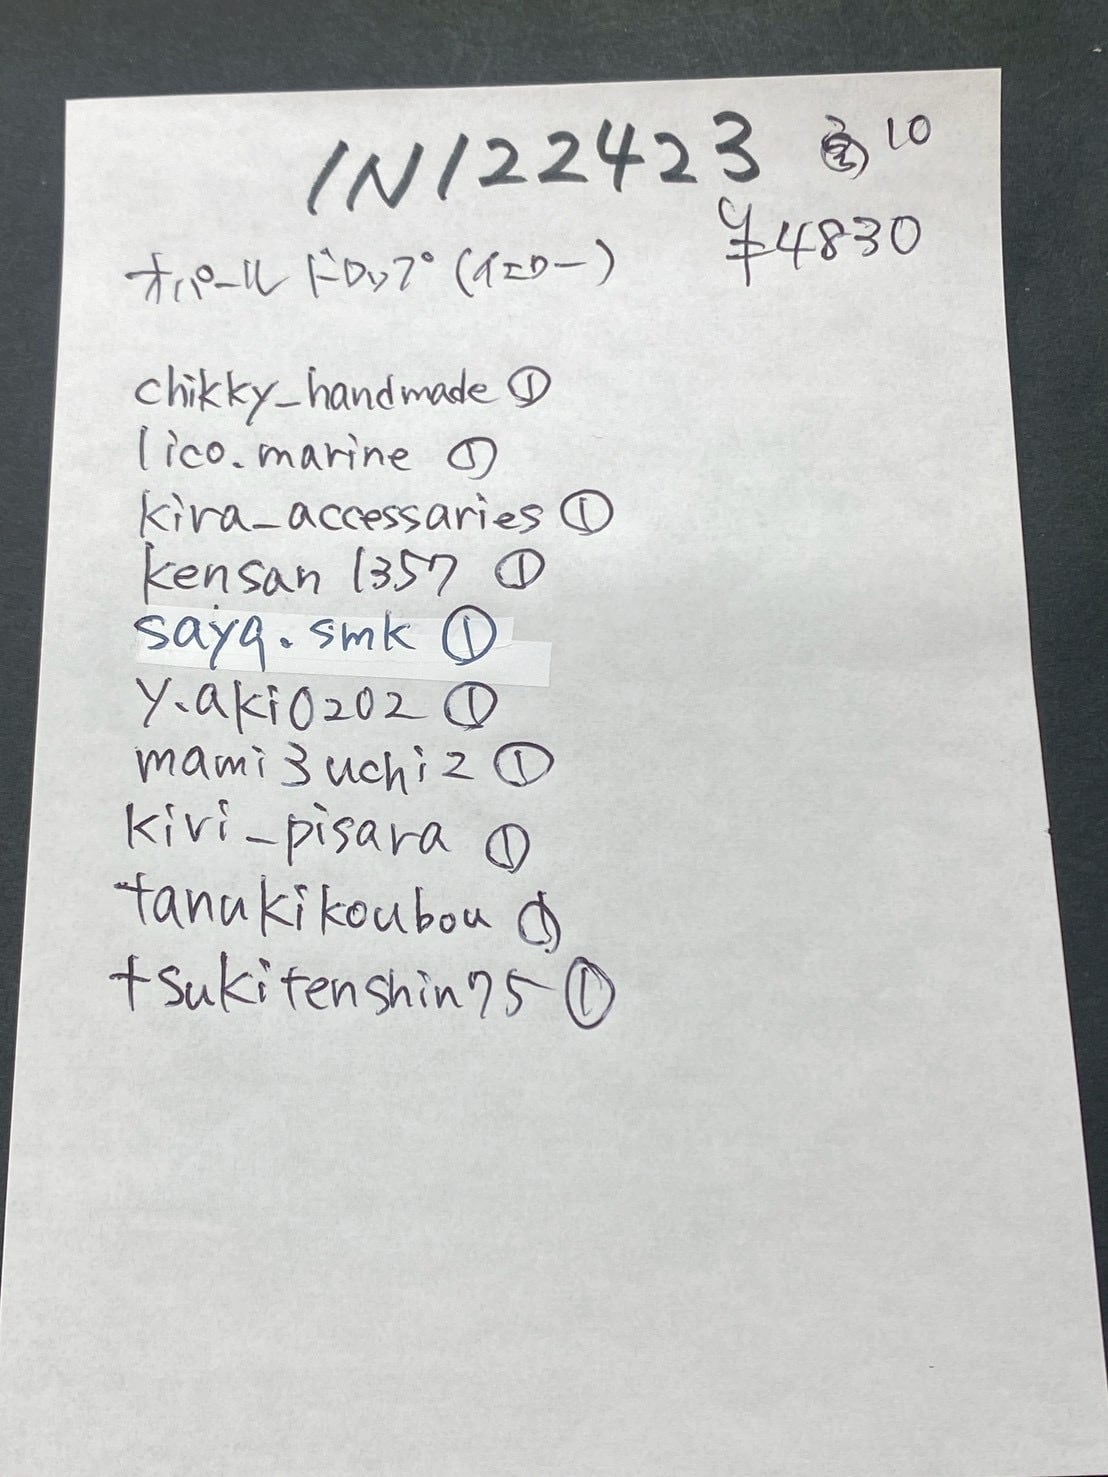 IN122423 10
¥4830
オパールドロップ(イエロー)
chikky_handmade ①
lico.marine ①
kira_accessaries ①
kensan1357 ①
sayq.smk ①
y.aki0202 ①
mami3uchi2 ①
kivi_pisara ①
tanukikoubou ①
tsukitenshin75 ①